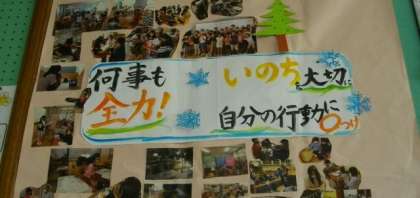 何事も
全力！
いのちを大切に
自分の行動に○つけ